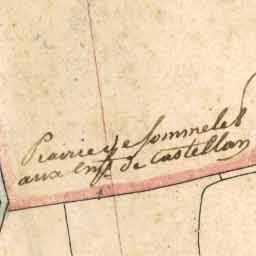 Prairie de Sommeles
aux enf. de Castellan